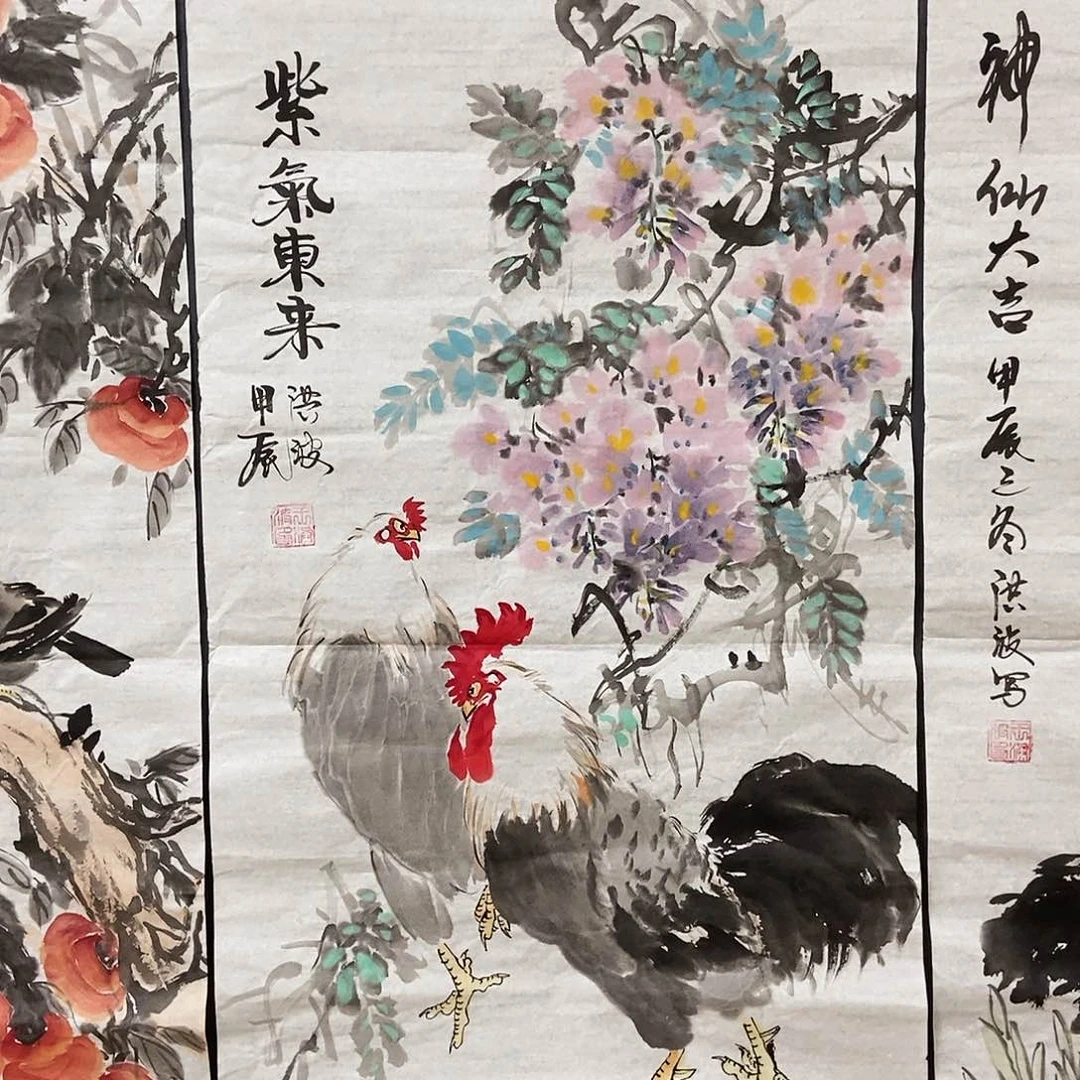 紫氣東来
洪波
甲辰
神仙大吉 甲辰之冬 洪波写